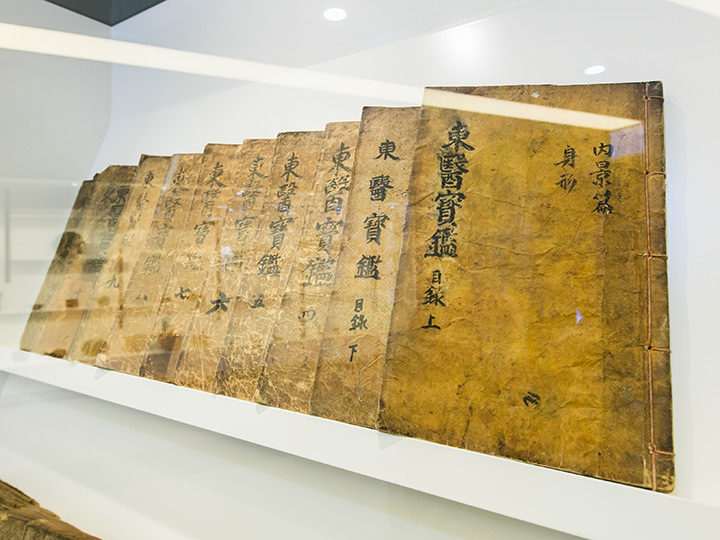 内景篇
身形
東醫寶鑑 目錄 上
東醫寶鑑 目錄 下
東醫寶鑑 四
東醫寶鑑 五
東醫寶 六
東醫寶 七
東 八
東 九
東